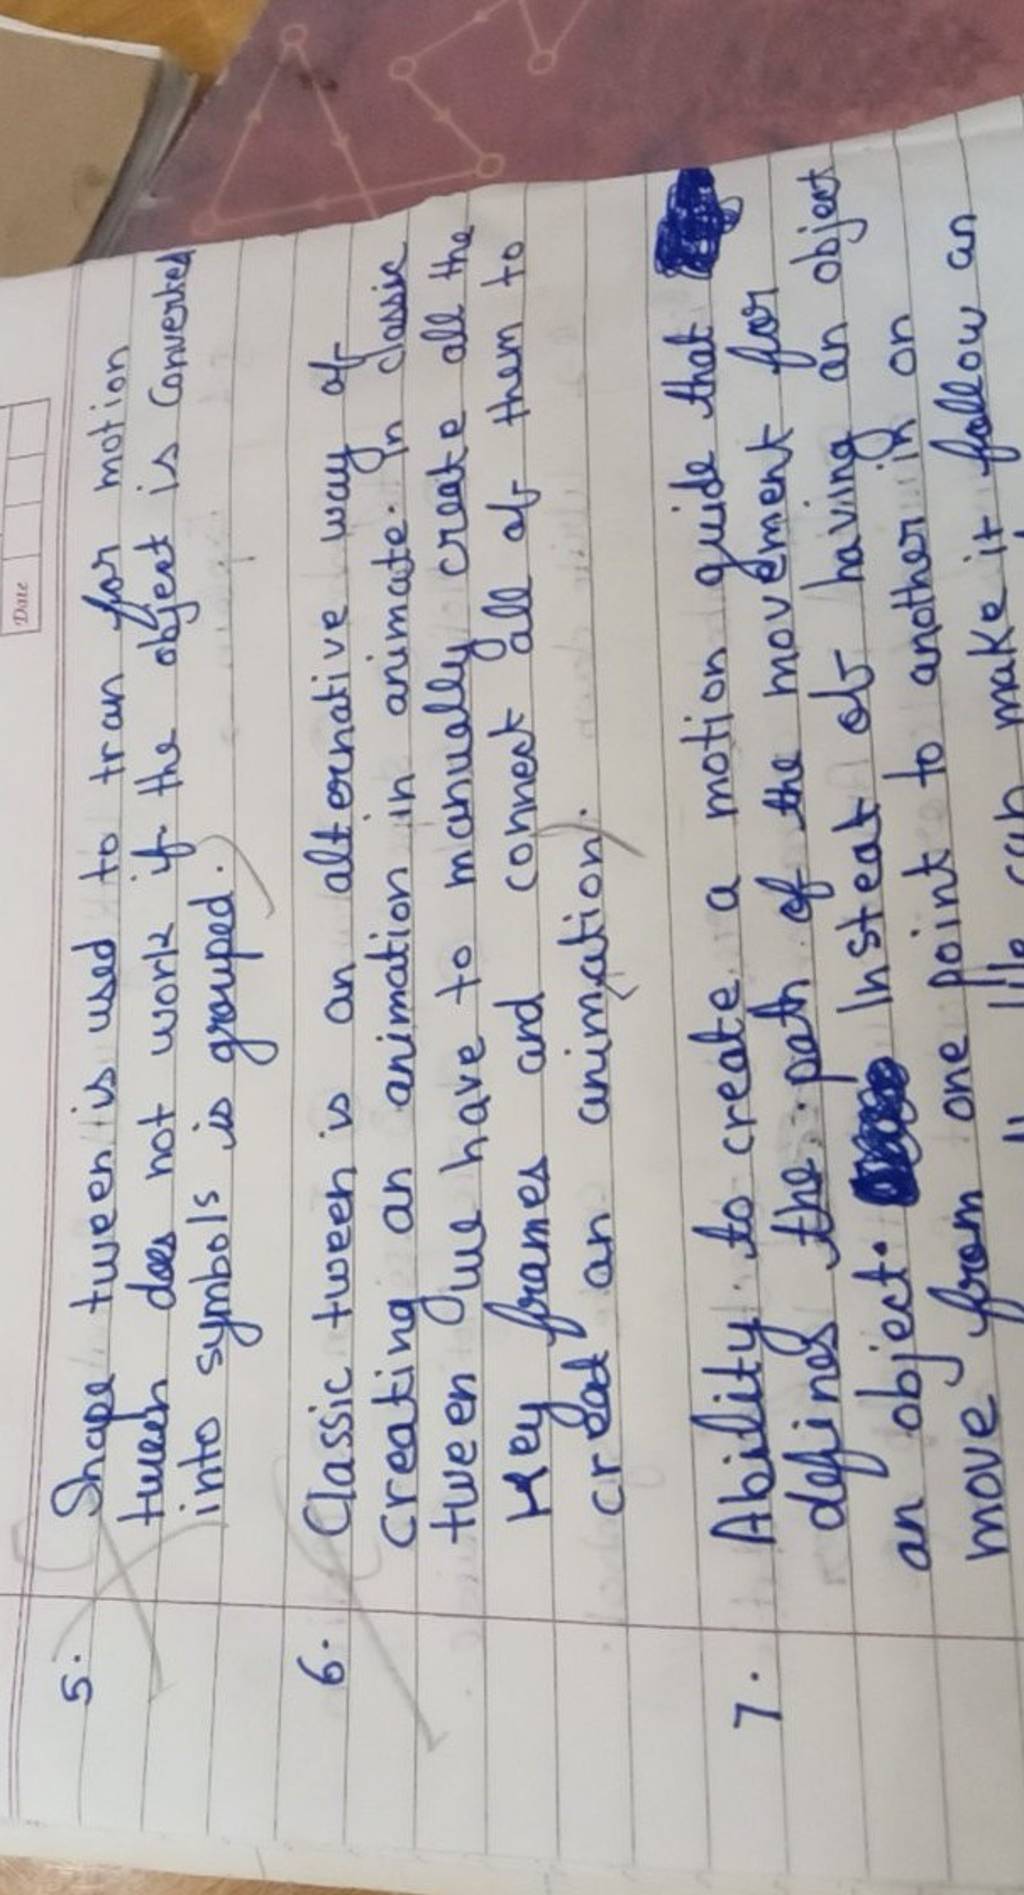 Date
5. Shape tween is used to tran for motion
tween does not work if the object is converted
into symbols is grouped.
6. Classic tween is an alternative way of
creating an animation in animate. In classic
tween we have to manually create all the
Key frames and connect all of them to
creat an animation.
7. Ability to create a motion guide that
defines the path of the movement for
an object. Insteat of having an object
move from one point to another in on
can make it follow an